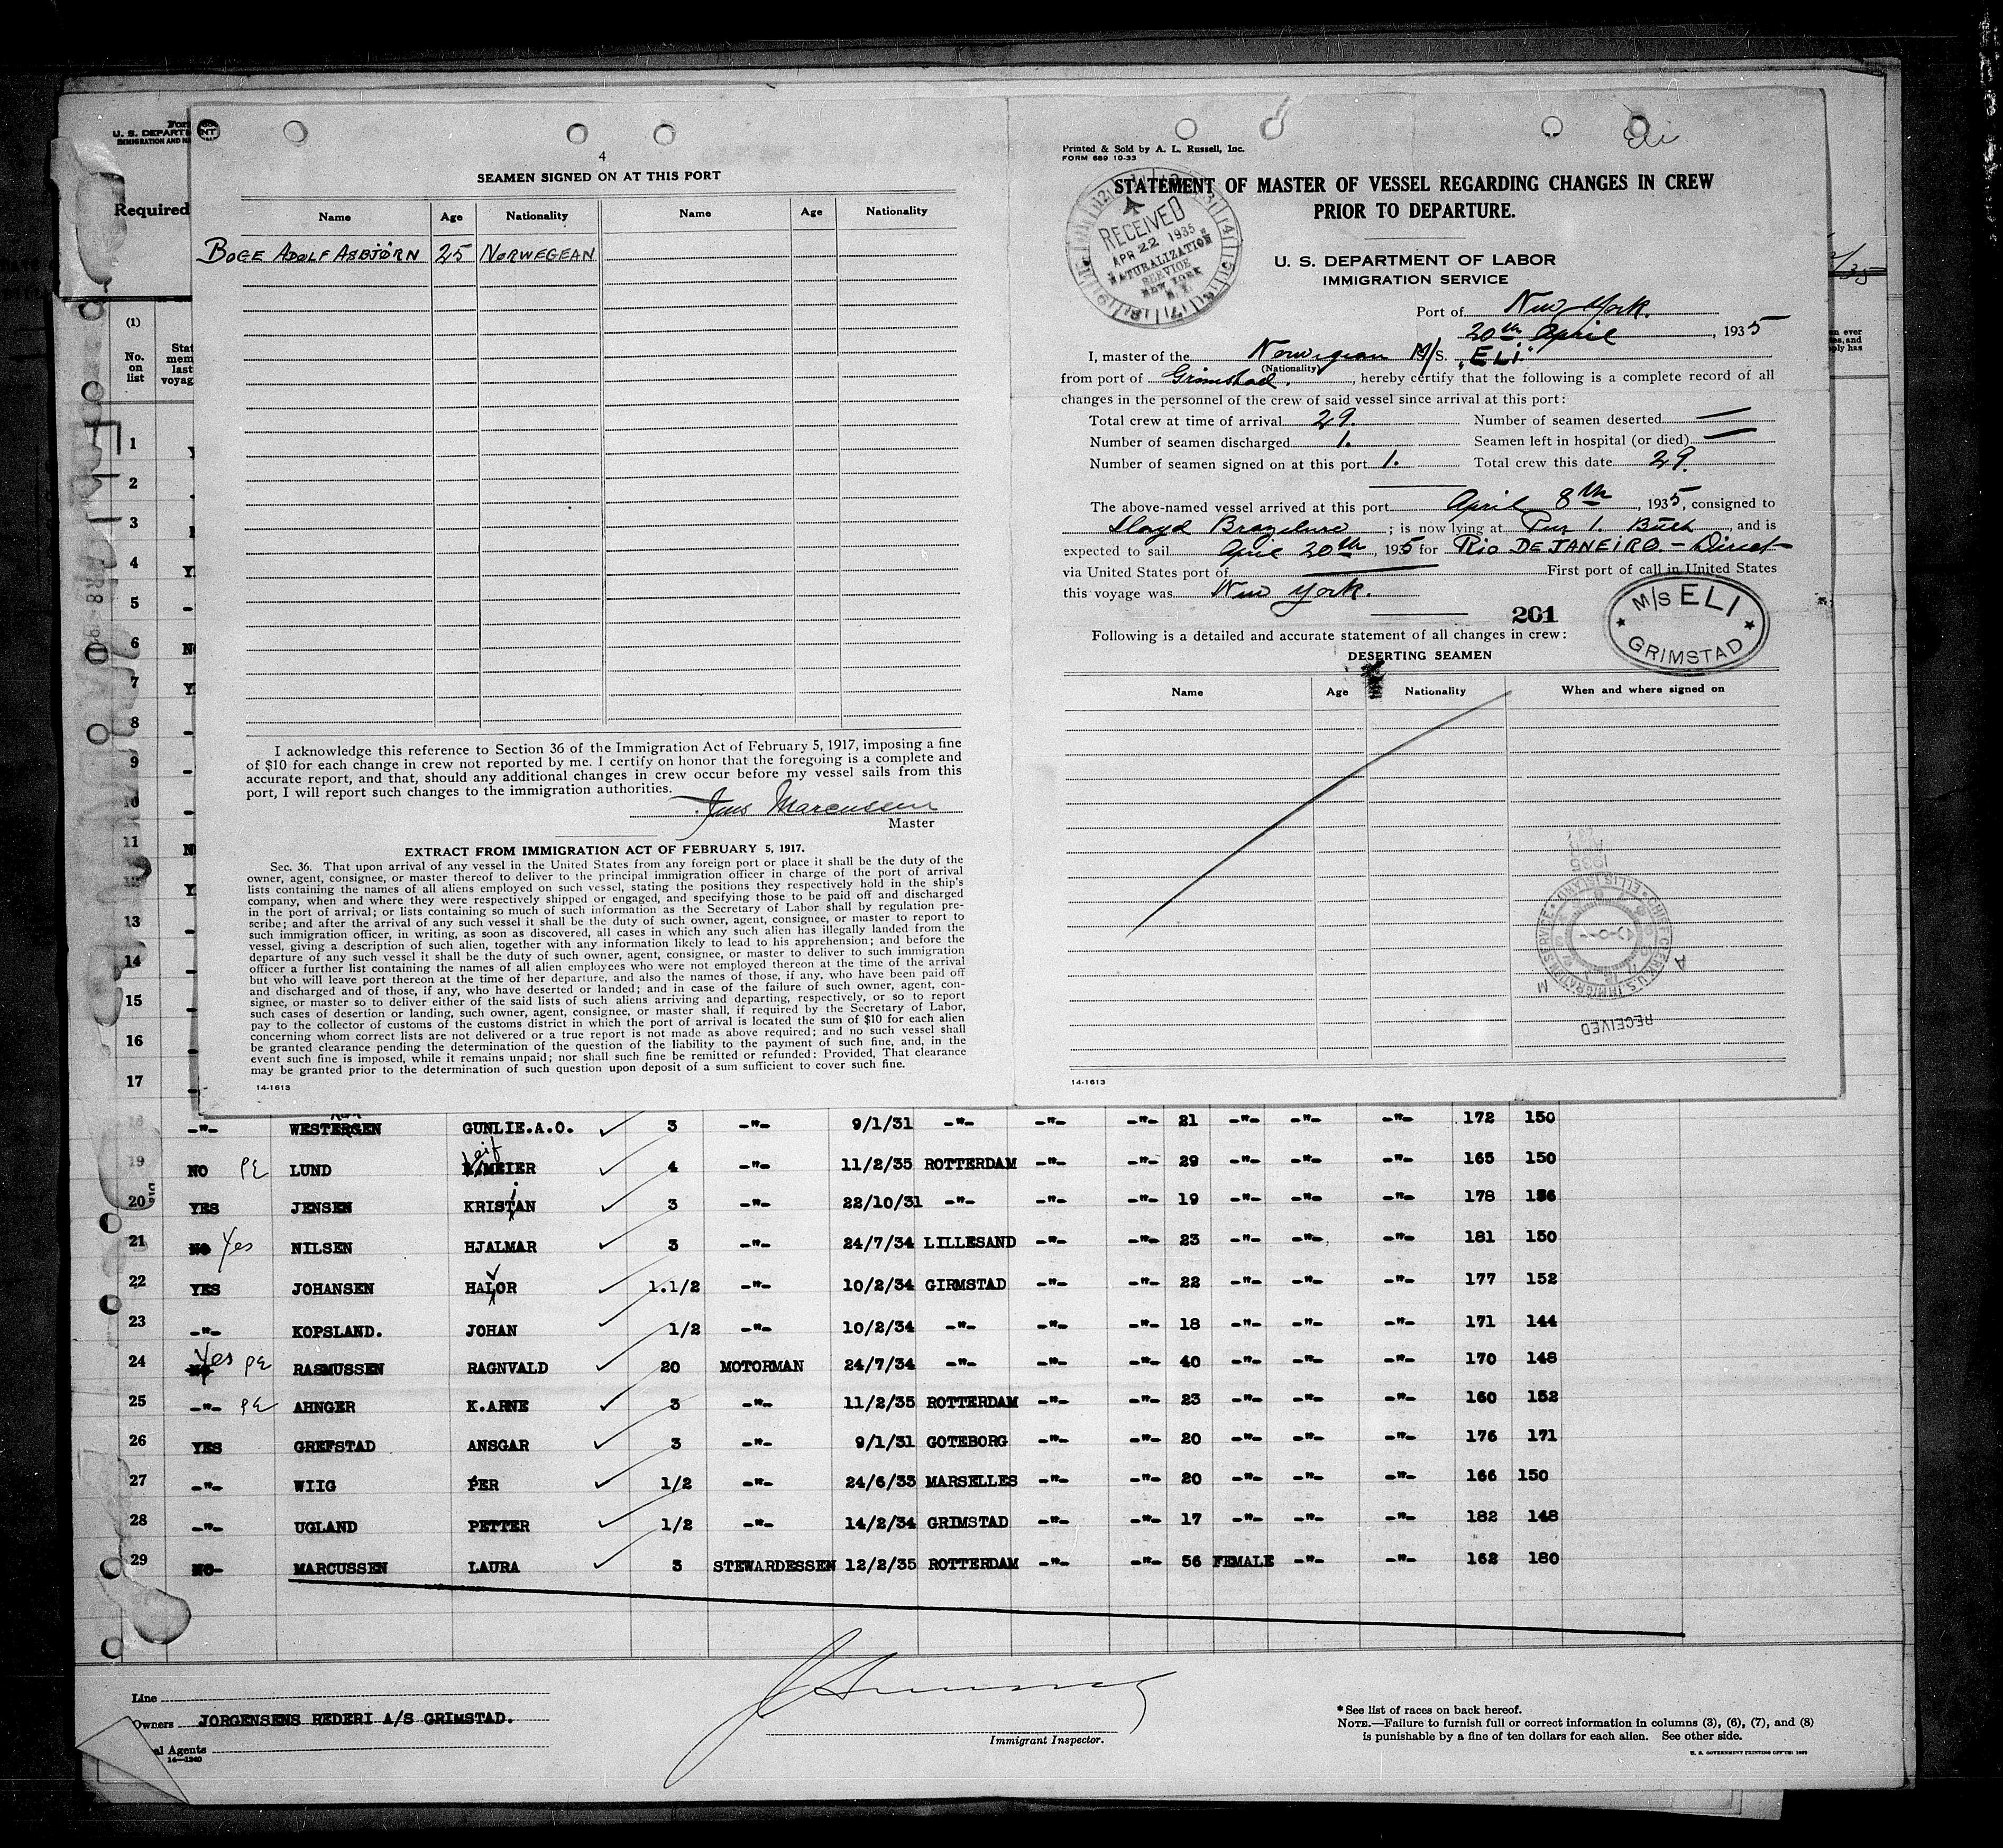 Form
U. S. DEPARTM
IMMIGRATION AND NA
Required
(1)
No. on list
Stat
mem
last
voyag
4
SEAMEN SIGNED ON AT THIS PORT
Name Age Nationality Name Age Nationality
BOGE ADOLF ASBJØRN 25 NORWEGEAN
I acknowledge this reference to Section 36 of the Immigration Act of February 5, 1917, imposing a fine
of $10 for each change in crew not reported by me. I certify on honor that the foregoing is a complete and
accurate report, and that, should any additional changes in crew occur before my vessel sails from this
port, I will report such changes to the immigration authorities.
Jens Marcussen
Master
EXTRACT FROM IMMIGRATION ACT OF FEBRUARY 5, 1917.
Sec. 36. That upon arrival of any vessel in the United States from any foreign port or place it shall be the duty of the
owner, agent, consignee, or master thereof to deliver to the principal immigration officer in charge of the port of arrival
lists containing the names of all aliens employed on such vessel, stating the positions they respectively hold in the ship's
company, when and where they were respectively shipped or engaged, and specifying those to be paid off and discharged
in the port of arrival; or lists containing so much of such information as the Secretary of Labor shall by regulation pre-
scribe; and after the arrival of any such vessel it shall be the duty of such owner, agent, consignee, or master to report to
such immigration officer, in writing, as soon as discovered, all cases in which any such alien has illegally landed from the
vessel, giving a description of such alien, together with any information likely to lead to his apprehension; and before the
departure of any such vessel it shall be the duty of such owner, agent, consignee, or master to deliver to such immigration
officer a further list containing the names of all alien employees who were not employed thereon at the time of the arrival
but who will leave port thereon at the time of her departure, and also the names of those, if any, who have been paid off
and discharged and of those, if any, who have deserted or landed; and in case of the failure of such owner, agent, con-
signee, or master so to deliver either of the said lists of such aliens arriving and departing, respectively, or so to report
such cases of desertion or landing, such owner, agent, consignee, or master shall, if required by the Secretary of Labor,
pay to the collector of customs of the customs district in which the port of arrival is located the sum of $10 for each alien
concerning whom correct lists are not delivered or a true report is not made as above required; and no such vessel shall
be granted clearance pending the determination of the question of the liability to the payment of such fine, and, in the
event such fine is imposed, while it remains unpaid; nor shall such fine be remitted or refunded: Provided, That clearance
may be granted prior to the determination of such question upon deposit of a sum sufficient to cover such fine.
14-1613
Eli
Printed & Sold by A. L. Russell, Inc.
FORM 689 10-33
STATEMENT OF MASTER OF VESSEL REGARDING CHANGES IN CREW
PRIOR TO DEPARTURE.
RECEIVED
APR 22 1935
NATURALIZATION
SERVICE
NEW YORK
N. Y.
U. S. DEPARTMENT OF LABOR
IMMIGRATION SERVICE
Port of New York.
20th April, 1935
I, master of the Norwegian M/S. "ELI"
(Nationality)
from port of Grimstad., hereby certify that the following is a complete record of all
changes in the personnel of the crew of said vessel since arrival at this port:
Total crew at time of arrival 29. Number of seamen deserted —
Number of seamen discharged 1. Seamen left in hospital (or died) —
Number of seamen signed on at this port 1. Total crew this date 29.
The above-named vessel arrived at this port April 8th, 1935, consigned to
Lloyd Brazileiro; is now lying at Pier 1. Bush, and is
expected to sail April 20th, 1935 for RIO DE JANEIRO. - Direct -
via United States port of — First port of call in United States
this voyage was New York.
201
M/S ELI
GRIMSTAD
Following is a detailed and accurate statement of all changes in crew:
DESERTING SEAMEN
Name Age Nationality When and where signed on
1935
CHIEF CLERK, U.S. IMMIGRATION SERVICE ELLIS ISLAND
A M
RECEIVED
14-1613
1
2
3
4
5
6
7
8
9
10
11
12
13
14
15
16
17
18 -"- WESTERGEN GUNLIE.A.O. 3 -"- 9/1/31 -"- -"- -"- 21 -"- -"- -"- 172 150
19 NO PE LUND Leif MEIER 4 -"- 11/2/35 ROTTERDAM -"- -"- 29 -"- -"- -"- 165 150
20 YES JENSEN KRISTIAN 3 -"- 22/10/31 -"- -"- -"- 19 -"- -"- -"- 178 156
21 NO Yes NILSEN HJALMAR 3 -"- 24/7/34 LILLESAND -"- -"- 23 -"- -"- -"- 181 150
22 YES JOHANSEN HALVOR 1.1/2 -"- 10/2/34 GIRMSTAD -"- -"- 22 -"- -"- -"- 177 152
23 -"- KOPSLAND. JOHAN 1/2 -"- 10/2/34 -"- -"- -"- 18 -"- -"- -"- 171 144
24 NO Yes PE RASMUSSEN RAGNVALD 20 MOTORMAN 24/7/34 -"- -"- -"- 40 -"- -"- -"- 170 148
25 -"- PE AHNGER K.ARNE 3 -"- 11/2/35 ROTTERDAM -"- -"- 23 -"- -"- -"- 160 152
26 YES GREFSTAD ANSGAR 3 -"- 9/1/31 GOTEBORG -"- -"- 20 -"- -"- -"- 176 171
27 -"- WIIG PER 1/2 -"- 24/6/33 MARSELLES -"- -"- 20 -"- -"- -"- 166 150
28 -"- UGLAND PETTER 1/2 -"- 14/2/34 GRIMSTAD -"- -"- 17 -"- -"- -"- 182 148
29 NO- MARCUSSEN LAURA 3 STEWARDESSEN 12/2/35 ROTTERDAM -"- -"- 56 FEMALE -"- -"- 162 180
Line
Owners JORGENSENS REDERI A/S GRIMSTAD.
al Agents
14-1240
Immigrant Inspector.
* See list of races on back hereof.
NOTE.—Failure to furnish full or correct information in columns (3), (6), (7), and (8)
is punishable by a fine of ten dollars for each alien. See other side.
U. S. GOVERNMENT PRINTING OFFICE